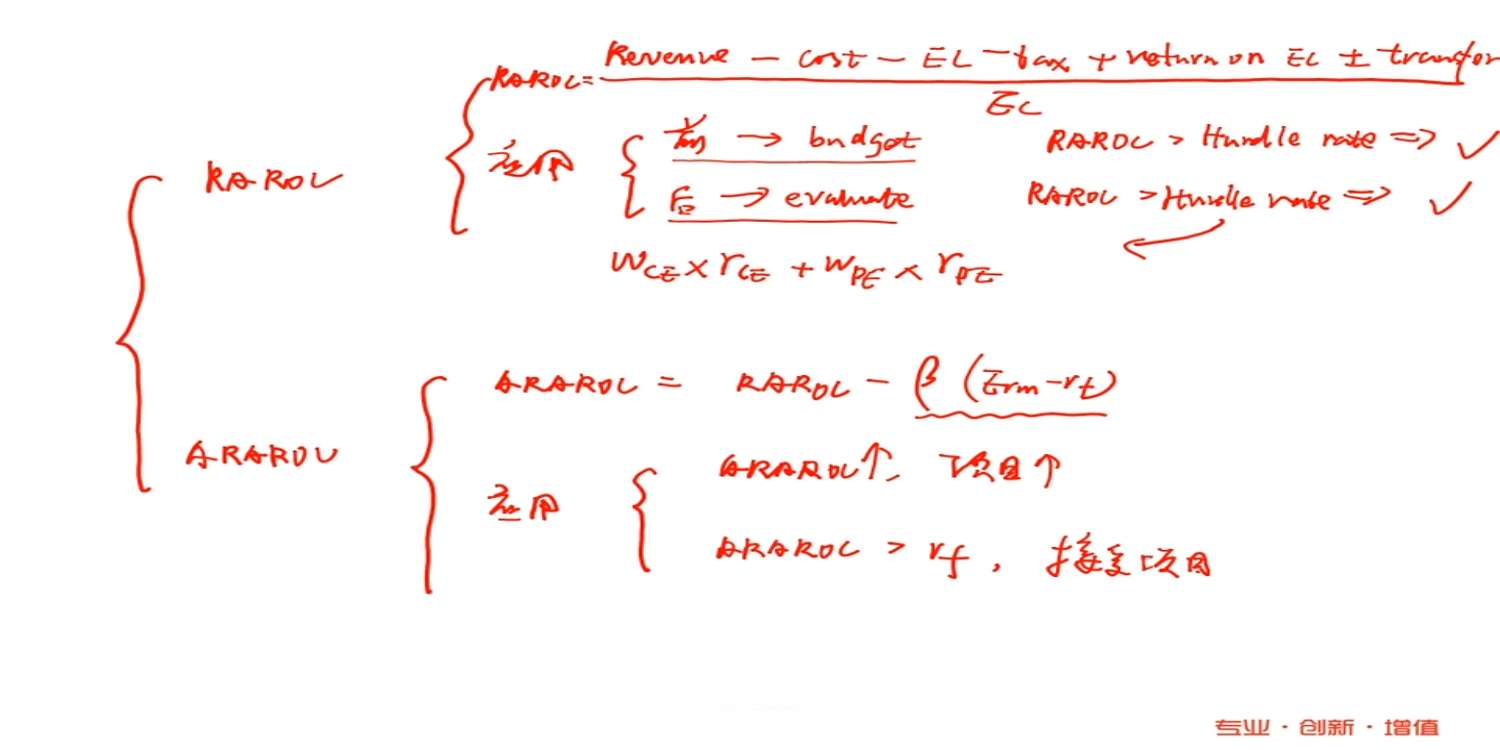 RAROC = Revenue - cost - EL - tax + return on EC ± transfer
EC
应用
前 → budget RAROC > Hurdle rate ⇒ ✓
RAROC
后 → evaluate RAROC > Hurdle rate ⇒ ✓
W_CE × r_CE + W_PE × r_PE
ARAROC = RAROC - β (E_rm - r_f)
ARAROC
ARAROC↑, 项目↑
应用
ARAROC > r_f, 接受项目
专业·创新·增值